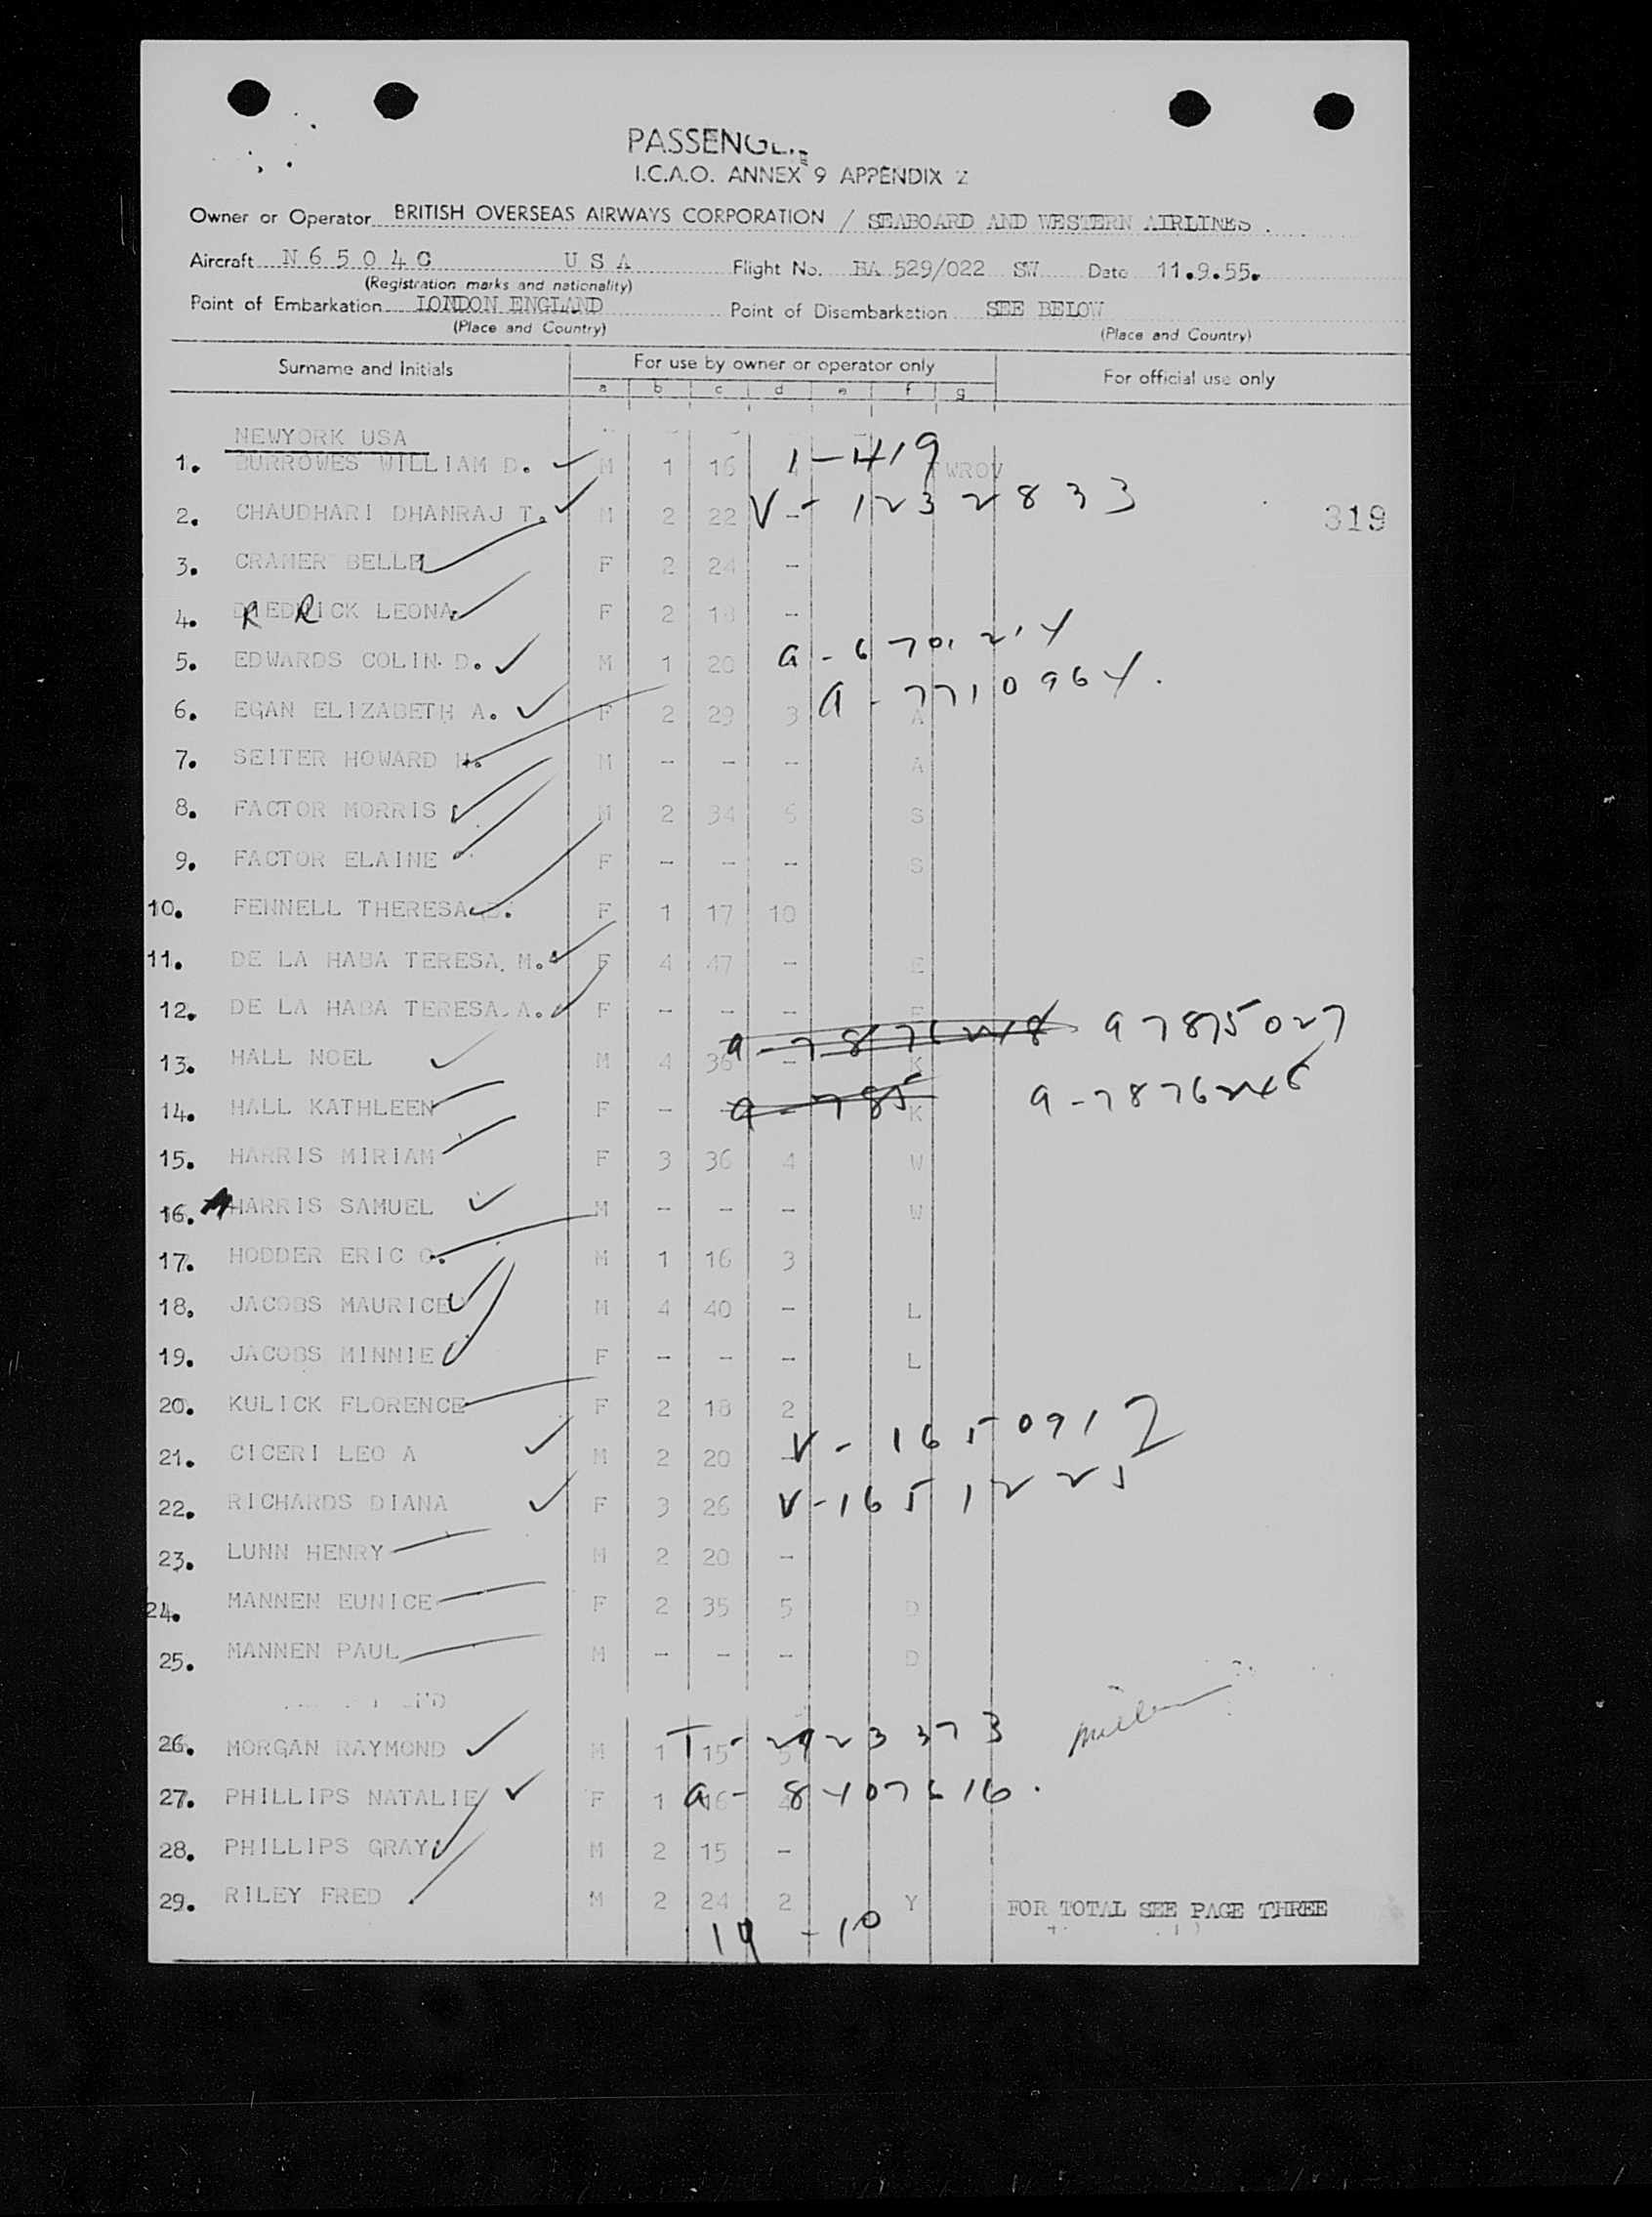 PASSENGE
I.C.A.O. ANNEX 9 APPENDIX 2
Owner or Operator BRITISH OVERSEAS AIRWAYS CORPORATION / SEABOARD AND WESTERN AIRLINES .
Aircraft N6504C USA Flight No. BA 529/022 SW Date 11.9.55.
(Registration marks and nationality)
Point of Embarkation LONDON ENGLAND Point of Disembarkation SEE BELOW
(Place and Country) (Place and Country)
Surname and Initials For use by owner or operator only For official use only
a b c d e f g
NEWYORK USA
1. BURROWES WILLIAM D. M 1 16 1-419 TWROV
2. CHAUDHARI DHANRAJ T. M 2 22 - V-1232833 319
3. CRAMER BELLE F 2 24 -
4. DREDRICK LEONA F 2 18 -
5. EDWARDS COLIN D. M 1 20 a-6701214
6. EGAN ELIZABETH A. F 2 29 3 A a-7710964.
7. SEITER HOWARD H. M - - - A
8. FACTOR MORRIS M 2 34 6 S
9. FACTOR ELAINE F - - - S
10. FENNELL THERESA F 1 17 10
11. DE LA HABA TERESA. M. F 4 47 - E
12. DE LA HABA TERESA. A. F - - - E
13. HALL NOEL M 4 36 - K a-7876248 a7875027
14. HALL KATHLEEN F - - K a-785 a-7876246
15. HARRIS MIRIAM F 3 36 4 W
16. HARRIS SAMUEL M - - - W
17. HODDER ERIC O. M 1 16 3
18. JACOBS MAURICE M 4 40 - L
19. JACOBS MINNIE F - - - L
20. KULICK FLORENCE F 2 18 2
21. CICERI LEO A M 2 20 - V-1650912
22. RICHARDS DIANA F 3 26 V-1651221
23. LUNN HENRY M 2 20 -
24. MANNEN EUNICE F 2 35 5 D
25. MANNEN PAUL M - - - D
26. MORGAN RAYMOND M 1 15 5 T-2923373
27. PHILLIPS NATALIE F 1 16 4 a-8107616.
28. PHILLIPS GRAY M 2 15 -
29. RILEY FRED M 2 24 2 Y FOR TOTAL SEE PAGE THREE
19 -10